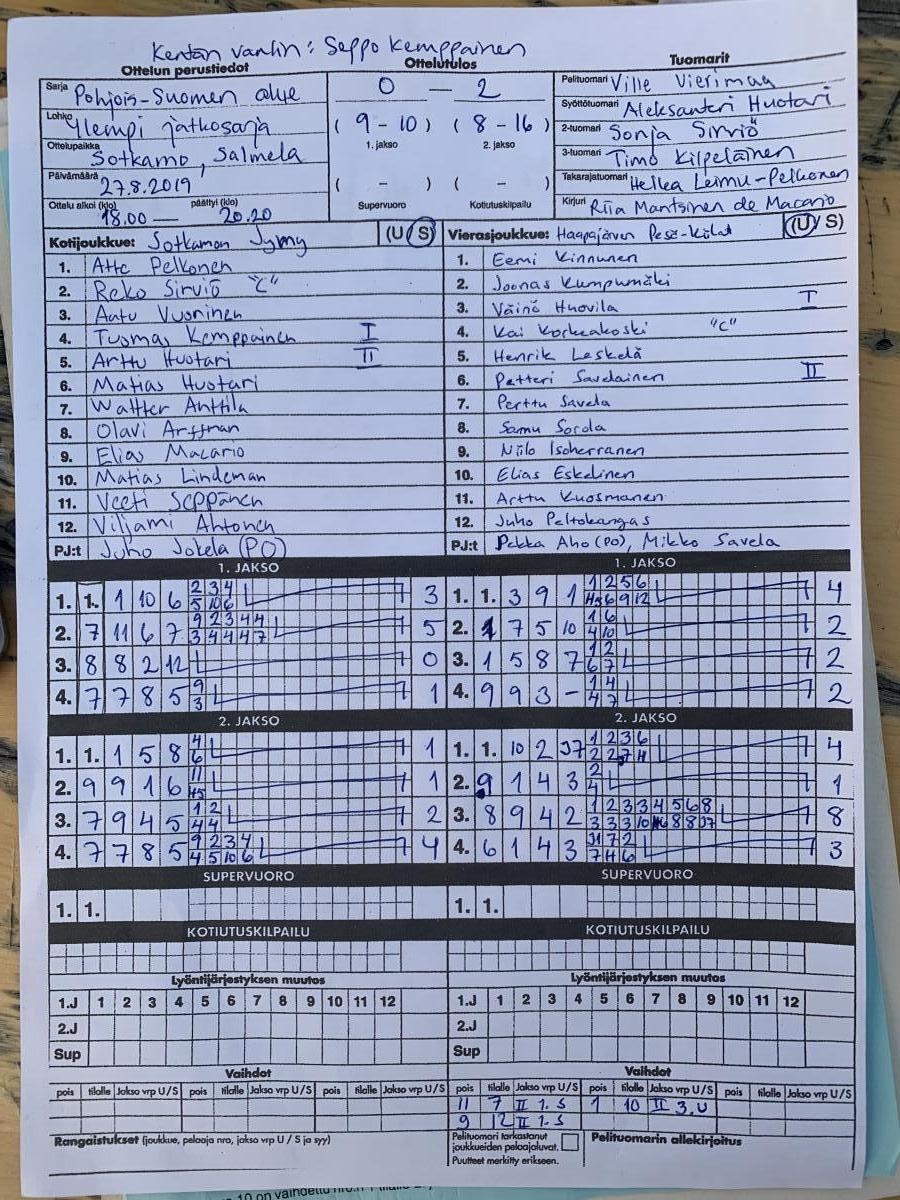 Kentän vanhin: Seppo Kemppainen
Ottelun perustiedot
Sarja Pohjois-Suomen alue
Lohko Ylempi jatkosarja
Ottelupaikka Sotkamo, Salmela
Päivämäärä 27.8.2019
Ottelu alkoi (klo) 18.00 — päättyi (klo) 20.20
Ottelutulos
0 — 2
( 9 - 10 ) ( 8 - 16 )
1. jakso 2. jakso
( - ) ( - )
Supervuoro Kotiutuskilpailu
Tuomarit
Pelituomari Ville Vierimaa
Syöttötuomari Aleksanteri Huotari
2-tuomari Sonja Sirviö
3-tuomari Timo Kilpeläinen
Takarajatuomari Helka Leimu-Pelkonen
Kirjuri Riia Mantsinen de Macario
Kotijoukkue: Sotkamon Jymy (U S)
1. Atte Pelkonen
2. Roko Sirviö "C"
3. Aatu Vuorinen
4. Tuomas Kemppainen I
5. Arttu Huotari II
6. Matias Huotari
7. Waltter Anttila
8. Olavi Arffman
9. Elias Macario
10. Matias Lindeman
11. Veeti Seppänen
12. Viljami Ahtonen
PJ:t Juho Jokela (PO)
Vierasjoukkue: Haapajärven Pesä-Kiilat (U S)
1. Eemi Kinnunen
2. Joonas Kumpumäki
3. Väinö Huovila I
4. Kai Korkeakoski "C"
5. Henrik Leskelä
6. Petteri Savolainen II
7. Perttu Savela
8. Samu Sorola
9. Niilo Isoherranen
10. Elias Eskelinen
11. Arttu Kuosmanen
12. Juho Peltokangas
PJ:t Pekka Aho (PO), Mikko Savela
1. JAKSO
1. 1. 1 10 6 2 3 4 3
5 10 6
2. 7 11 6 7 9 2 3 4 4 5
3 4 4 4 7
3. 8 8 2 12 0
4. 7 7 8 5 9 1
3
1. JAKSO
1. 1. 3 9 1 1 2 5 6 4
6 9 12
2. 1 7 5 10 1 6 2
4 10
3. 1 5 8 7 1 2 2
6 7
4. 9 9 3 - 1 4 2
4 7
2. JAKSO
1. 1. 1 5 8 4 1
6
2. 9 9 1 6 11 1
3. 7 9 4 5 1 2 2
4 4
4. 7 7 8 5 9 2 3 4 4
4 5 10 6
2. JAKSO
1. 1. 10 2 J7 1 2 3 6 4
2 2
2. 9 1 4 3 2 1
4
3. 8 9 4 2 1 2 3 3 4 5 6 8 8
3 3 3 10 8 8 J7
4. 6 1 4 3 J1 7 2 3
7 4 6
SUPERVUORO
1. 1.
SUPERVUORO
1. 1.
KOTIUTUSKILPAILU
KOTIUTUSKILPAILU
Lyöntijärjestyksen muutos
1.J 1 2 3 4 5 6 7 8 9 10 11 12
2.J
Sup
Lyöntijärjestyksen muutos
1.J 1 2 3 4 5 6 7 8 9 10 11 12
2.J
Sup
Vaihdot
pois tilalle Jakso vrp U/S pois tilalle Jakso vrp U/S pois tilalle Jakso vrp U/S
Vaihdot
pois tilalle Jakso vrp U/S pois tilalle Jakso vrp U/S pois tilalle Jakso vrp U/S
11 7 II 1. S 1 10 II 3. U
9 12 II 1. S
Rangaistukset (joukkue, pelaaja nro, jakso vrp U / S ja syy)
Pelituomari tarkastanut
joukkueiden pelaajaluvat.
Puutteet merkitty erikseen.
Pelituomarin allekirjoitus